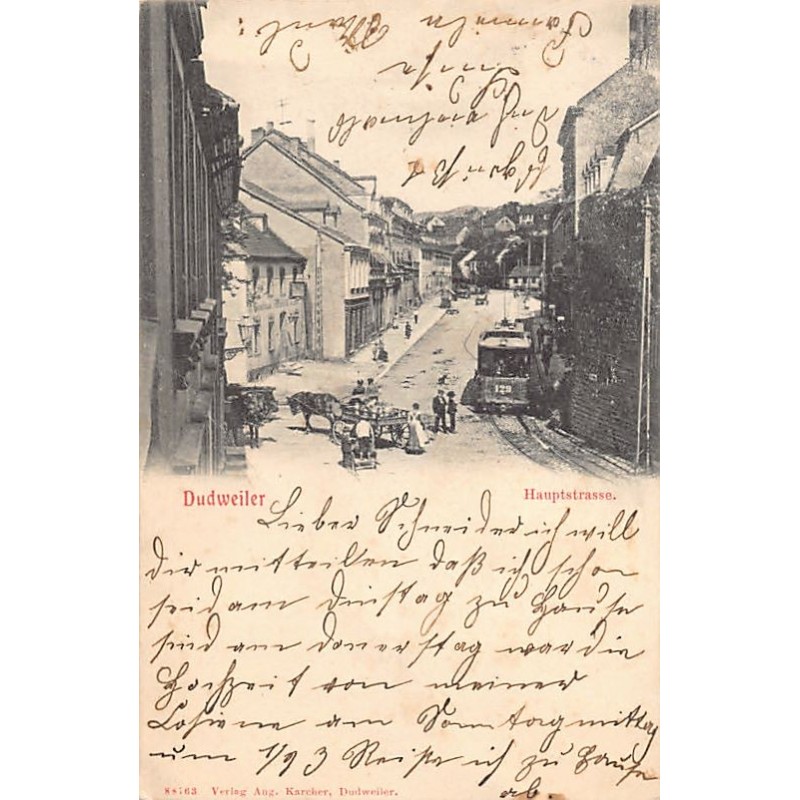 129
Dudweiler
Hauptstrasse.
Lieber Schneider ich will
dir mitteilen daß ich schon
seid am Dinstag zu Hause
sind am Donerstag war die
Hochzeit von meiner
Cosiene am Sonntagmittag
um 1/2 3 Reiste ich zu Hause
ab.
88763 Verlag Aug. Karcher, Dudweiler.
Es grüßt
dich vielmals
Familie